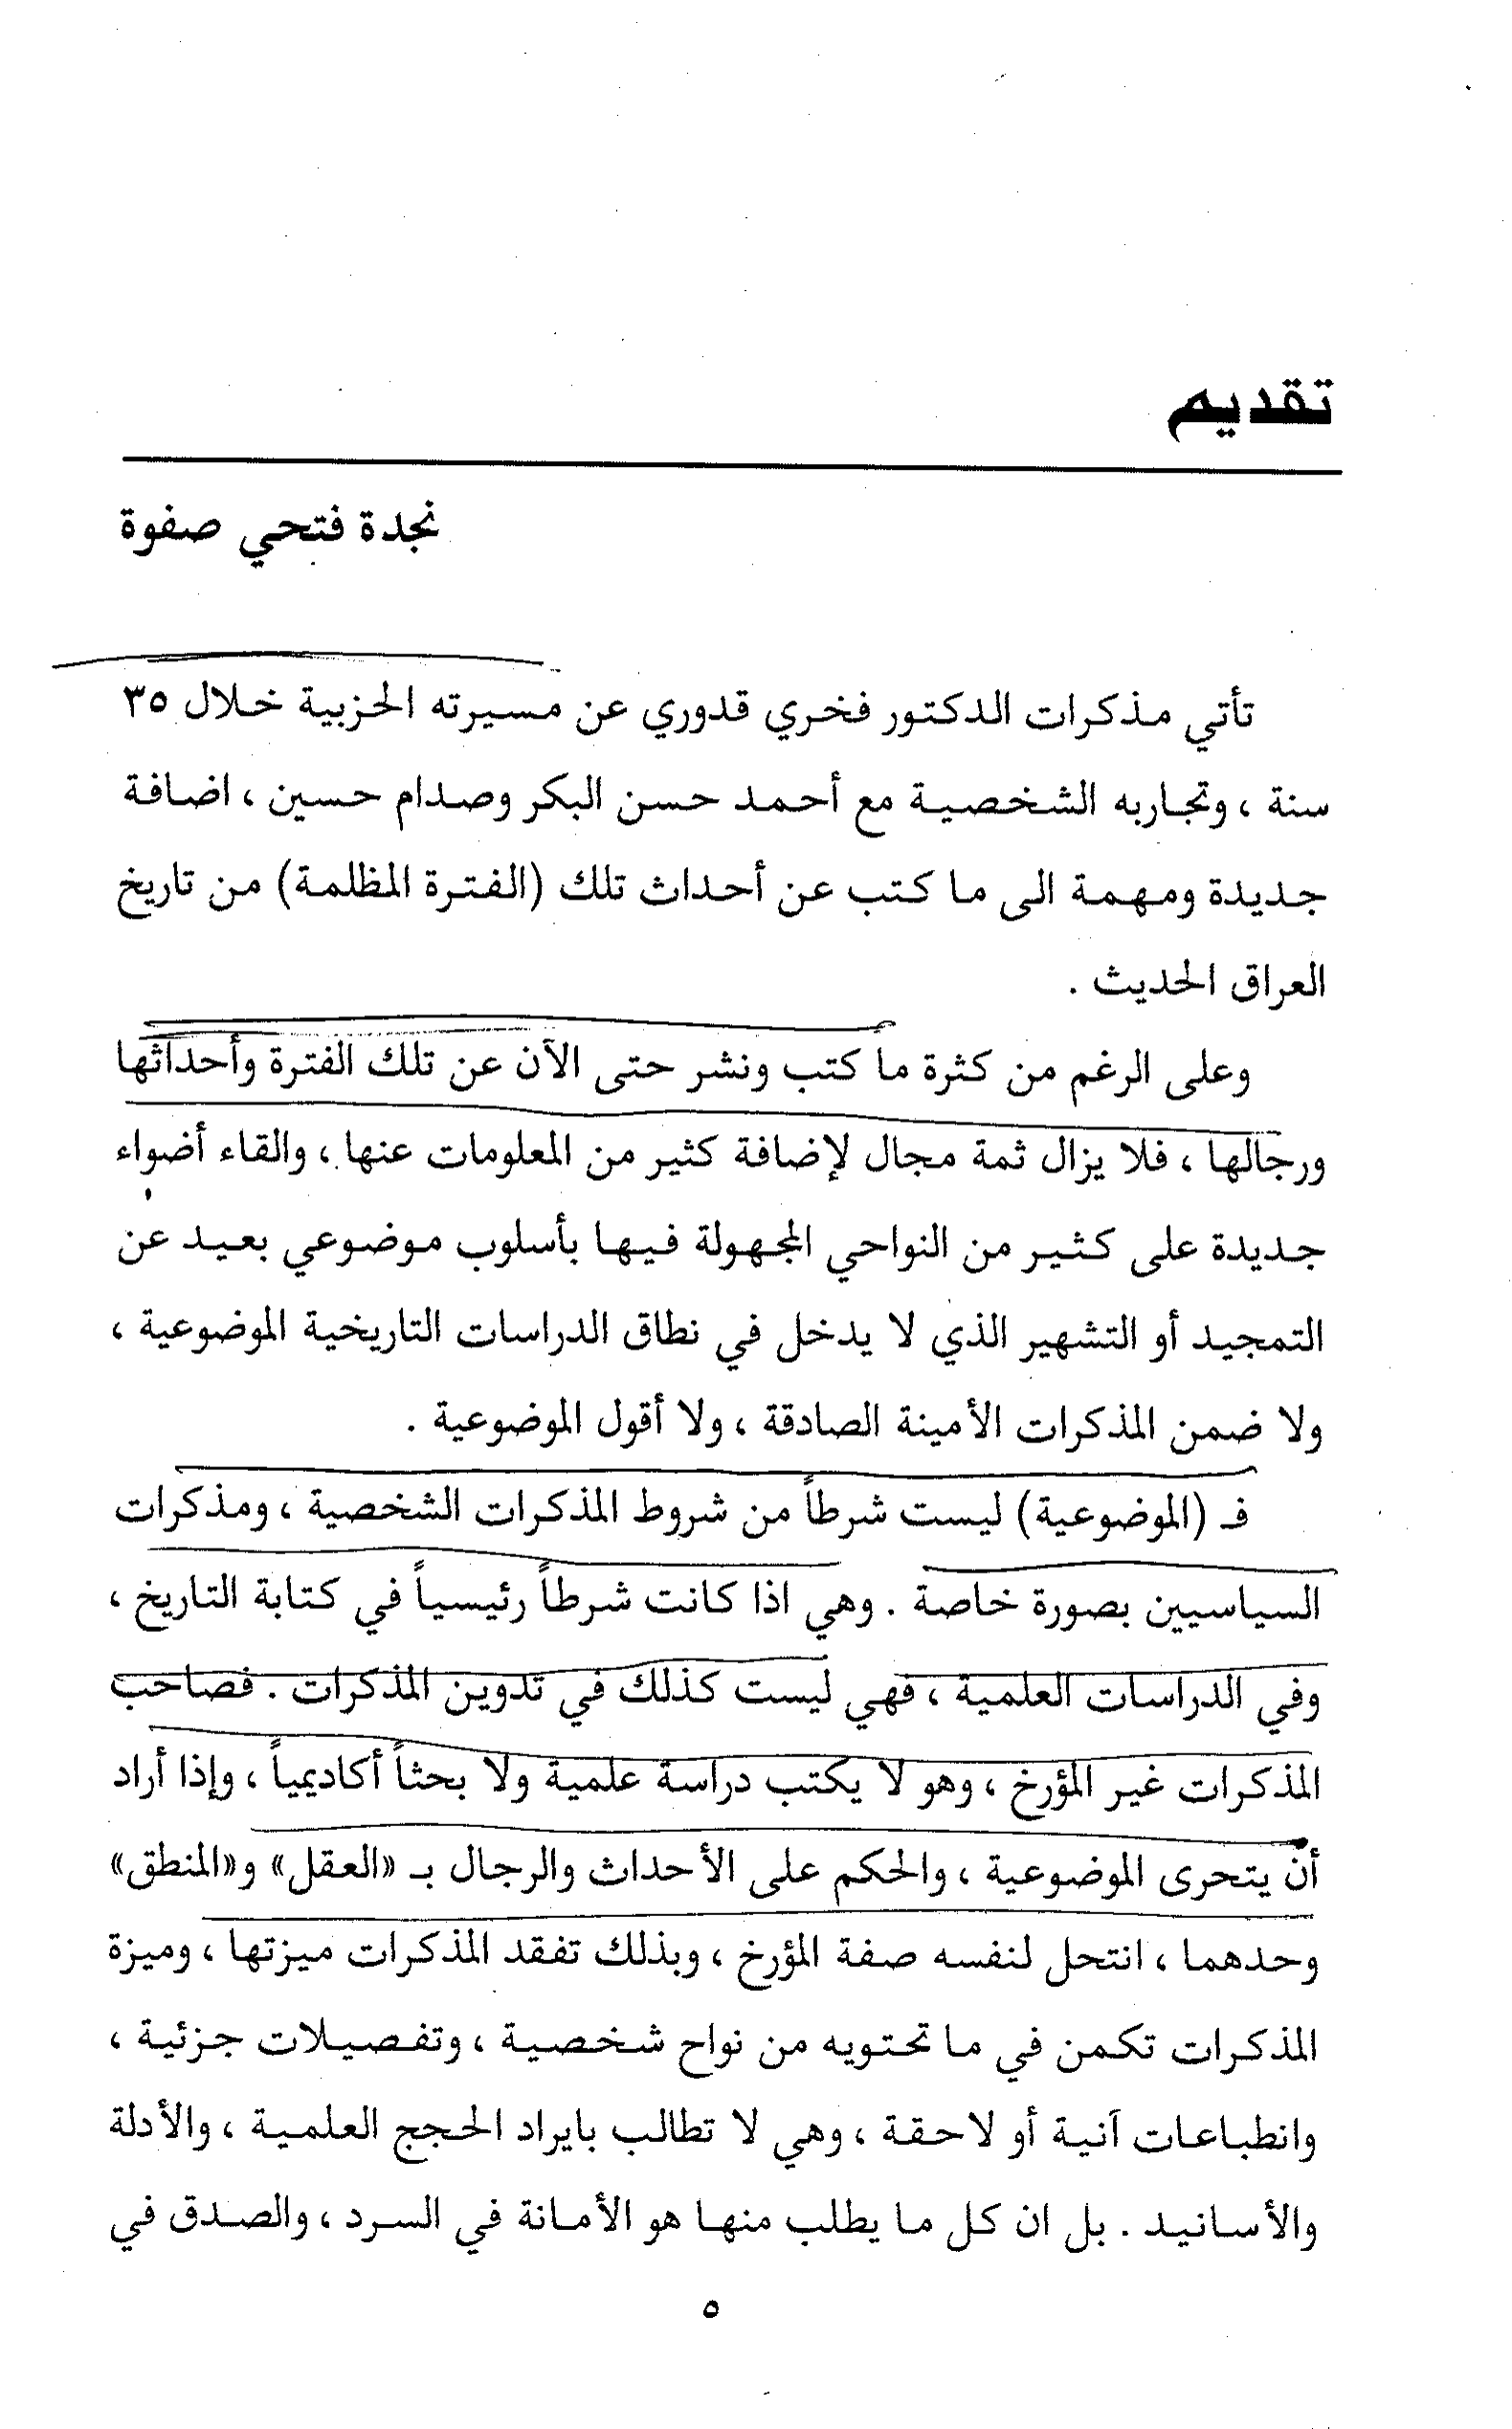 تقديم
نجدة فتحي صفوة
تأتي مذكرات الدكتور فخري قدوري عن مسيرته الحزبية خلال ٣٥
سنة ، وتجاربه الشخصية مع أحمد حسن البكر وصدام حسين ، اضافة
جديدة ومهمة الى ما كتب عن أحداث تلك (الفترة المظلمة) من تاريخ
العراق الحديث .
وعلى الرغم من كثرة ما كتب ونشر حتى الآن عن تلك الفترة وأحداثها
ورجالها ، فلا يزال ثمة مجال لإضافة كثير من المعلومات عنها ، والقاء أضواء
جديدة على كثير من النواحي المجهولة فيها بأسلوب موضوعي بعيد عن
التمجيد أو التشهير الذي لا يدخل في نطاق الدراسات التاريخية الموضوعية ،
ولا ضمن المذكرات الأمينة الصادقة ، ولا أقول الموضوعية .
فـ (الموضوعية) ليست شرطاً من شروط المذكرات الشخصية ، ومذكرات
السياسيين بصورة خاصة . وهي اذا كانت شرطاً رئيسياً في كتابة التاريخ ،
وفي الدراسات العلمية ، فهي ليست كذلك في تدوين المذكرات . فصاحب
المذكرات غير المؤرخ ، وهو لا يكتب دراسة علمية ولا بحثاً أكاديمياً ، وإذا أراد
أن يتحرى الموضوعية ، والحكم على الأحداث والرجال بـ «العقل» و«المنطق»
وحدهما ، انتحل لنفسه صفة المؤرخ ، وبذلك تفقد المذكرات ميزتها ، وميزة
المذكرات تكمن في ما تحتويه من نواح شخصية ، وتفصيلات جزئية ،
وانطباعات آنية أو لاحقة ، وهي لا تطالب بايراد الحجج العلمية ، والأدلة
والأسانيد . بل ان كل ما يطلب منها هو الأمانة في السرد ، والصدق في
٥